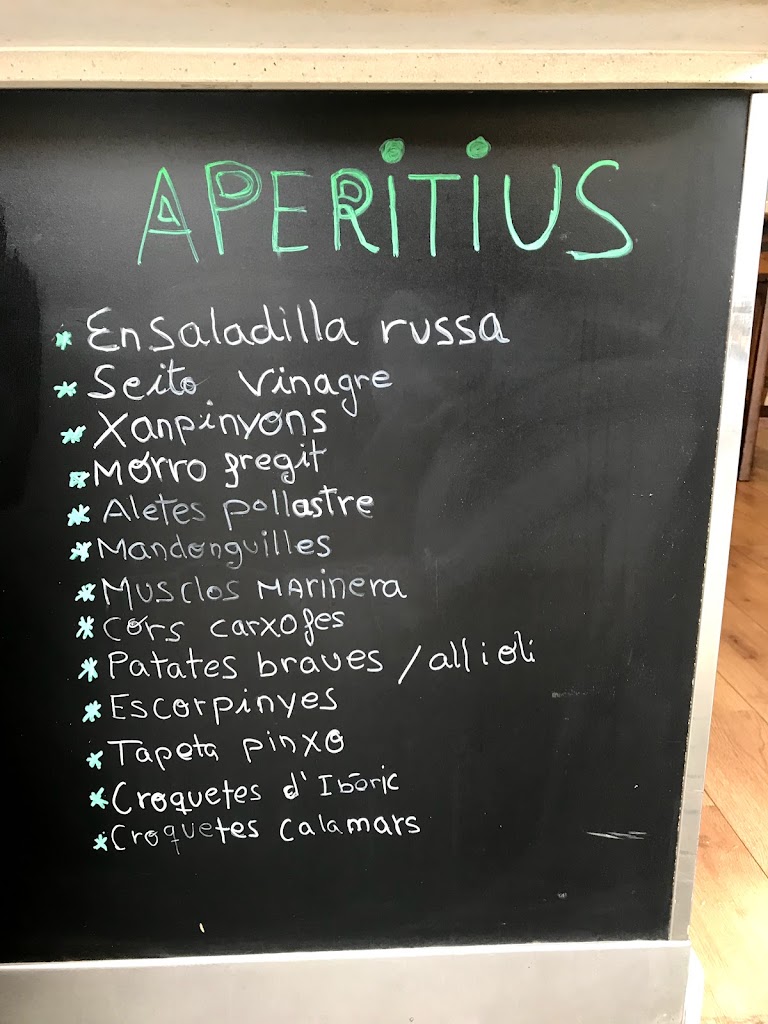 APERiTiUS
* Ensaladilla russa
* Seito Vinagre
* Xanpinyons
* Morro fregit
* Aletes pollastre
* Mandonguilles
* Musclos MArinera
* Cors carxofes
* Patates braves / all i oli
* Escorpinyes
* Tapeta pinxo
* Croquetes d'Ibèric
* Croquetes Calamars